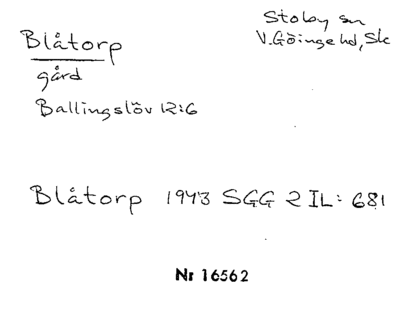 Blåtorp
gård
Ballingslöv 12:6
Stoby sn
V. Göinge hd, Sk
Blåtorp 1943 SGG 2 IL: 681
Nr 16562